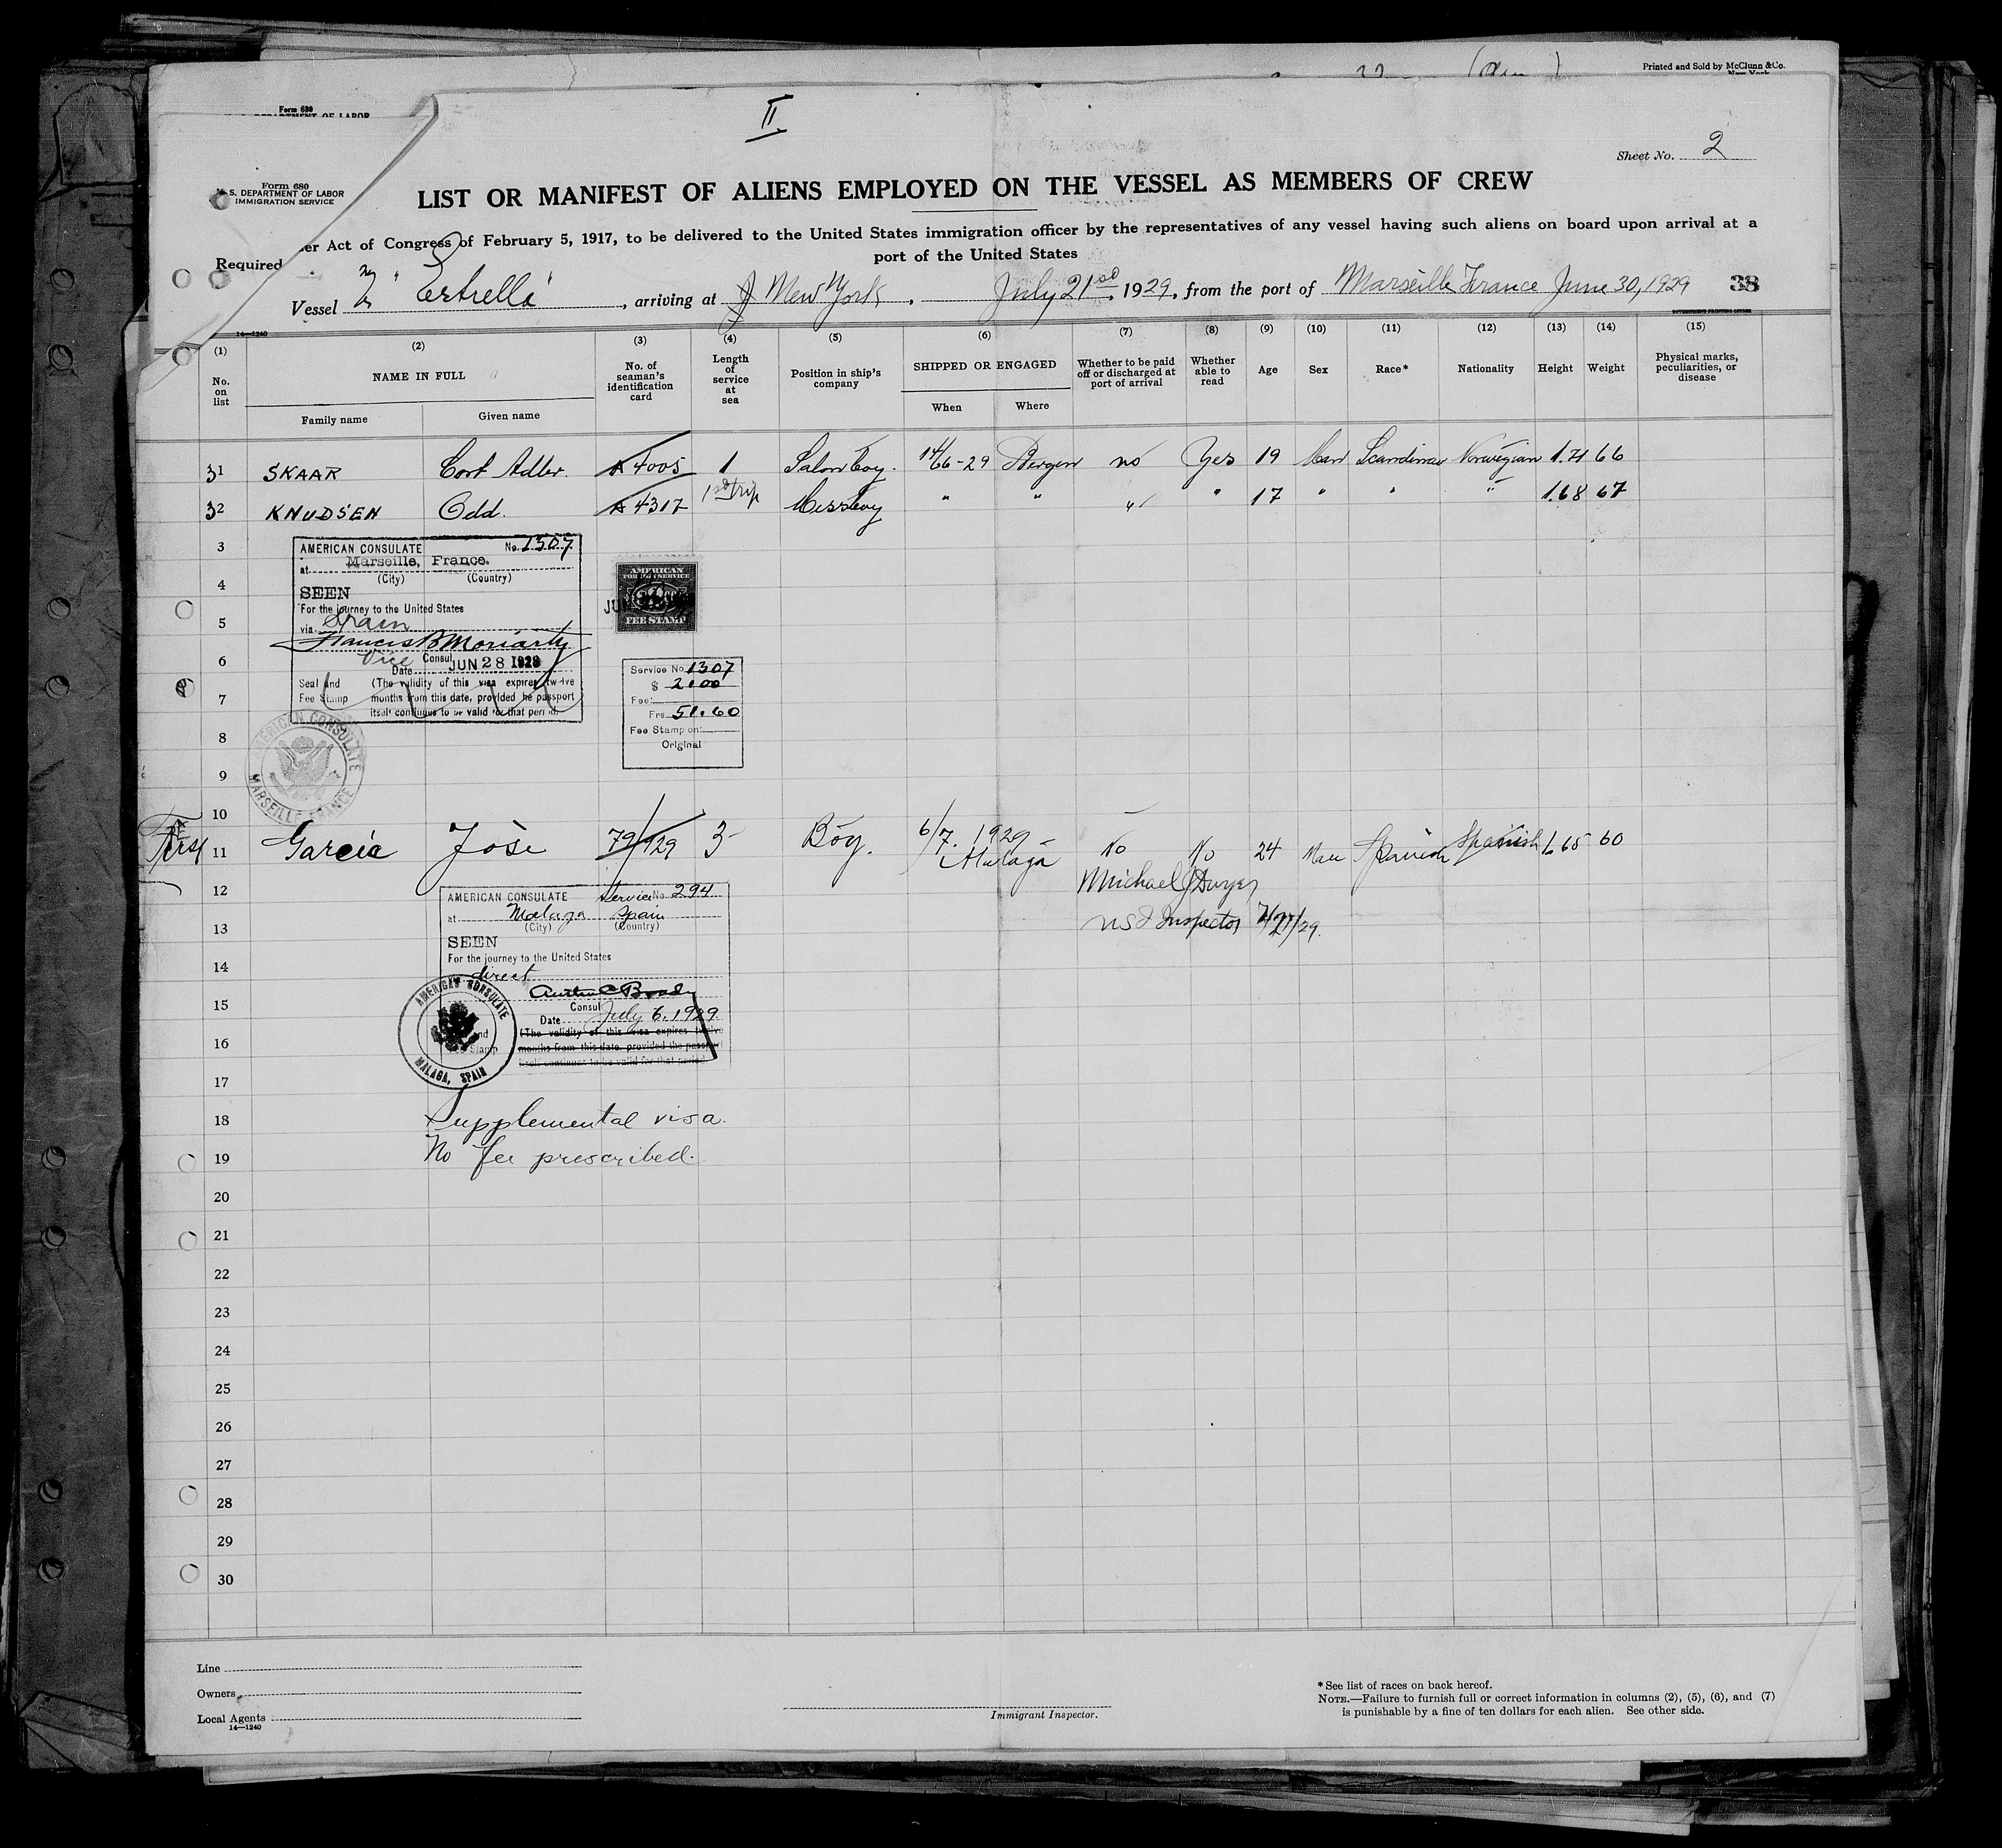 Printed and Sold by McClunn & Co.
New York
Form 680
DEPARTMENT OF LABOR
II
Sheet No. 2
Form 680
U. S. DEPARTMENT OF LABOR
IMMIGRATION SERVICE
LIST OR MANIFEST OF ALIENS EMPLOYED ON THE VESSEL AS MEMBERS OF CREW
Required
er Act of Congress of February 5, 1917, to be delivered to the United States immigration officer by the representatives of any vessel having such aliens on board upon arrival at a
port of the United States
Vessel "Estrella", arriving at New York, July 21st, 1929, from the port of Marseille France June 30, 1929 38
14—1240
(1) (2) (3) (4) (5) (6) (7) (8) (9) (10) (11) (12) (13) (14) (15)
No. on list
NAME IN FULL
Family name
Given name
No. of seaman's identification card
Length of service at sea
Position in ship's company
SHIPPED OR ENGAGED
When
Where
Whether to be paid off or discharged at port of arrival
Whether able to read
Age
Sex
Race*
Nationality
Height
Weight
Physical marks, peculiarities, or disease
31 SKAAR Cort Adler. A 4005 1 Salonboy. 14/6-29 Bergen no Yes 19 Man Scandinav Norwegian 1.71 66
32 KNUDSEN Odd. A 4317 1st trip Messboy " " " " 17 " " " 1.68 67
3
4
5
6
7
8
9
10
AMERICAN CONSULATE No. 1307
at Marseille, France.
(City) (Country)
SEEN
For the journey to the United States
via Spain
Francis B Moriarty
Vice Consul
Date JUN 28 1929
Seal and Fee Stamp
(The validity of this visa expires twelve
months from this date, provided the passport
itself continues to be valid for that period.
AMERICAN
FOREIGN SERVICE
FEE STAMP
Service No. 1307
$ 2.00
Fee:
Frs 51.60
Fee Stamp on:
Original
AMERICAN CONSULATE
MARSEILLE FRANCE
First 11 Garcia José 79/129 3 Boy. 6/7. 1929 Malaga No No 24 Man Spanish Spanish 1.65 60
Michael J Dwyer
US I Inspector 7/21/29.
12
13
14
15
16
17
18
19
20
21
22
23
24
25
26
27
28
29
30
AMERICAN CONSULATE Service No. 294
at Malaga Spain
(City) (Country)
SEEN
For the journey to the United States
direct
Consul
Date July 6, 1929
(The validity of this visa expires twelve
months from this date, provided the passport
itself continues to be valid for that period.
AMERICAN CONSULATE
MALAGA, SPAIN
Supplemental visa.
No fee prescribed.
Line
Owners
Local Agents
14—1240
Immigrant Inspector.
*See list of races on back hereof.
NOTE.—Failure to furnish full or correct information in columns (2), (5), (6), and (7)
is punishable by a fine of ten dollars for each alien. See other side.